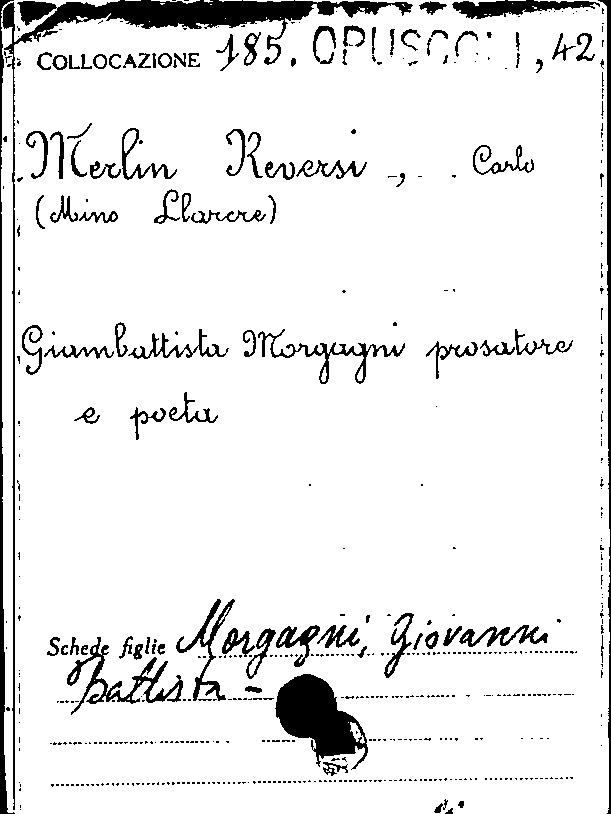 COLLOCAZIONE 185. OPUSCOLI, 42
Merlin Reversi, Carlo
(Mino Llarere)
Giambattista Morgagni prosatore
e poeta
Schede figlie Morgagni, Giovanni
Battista -